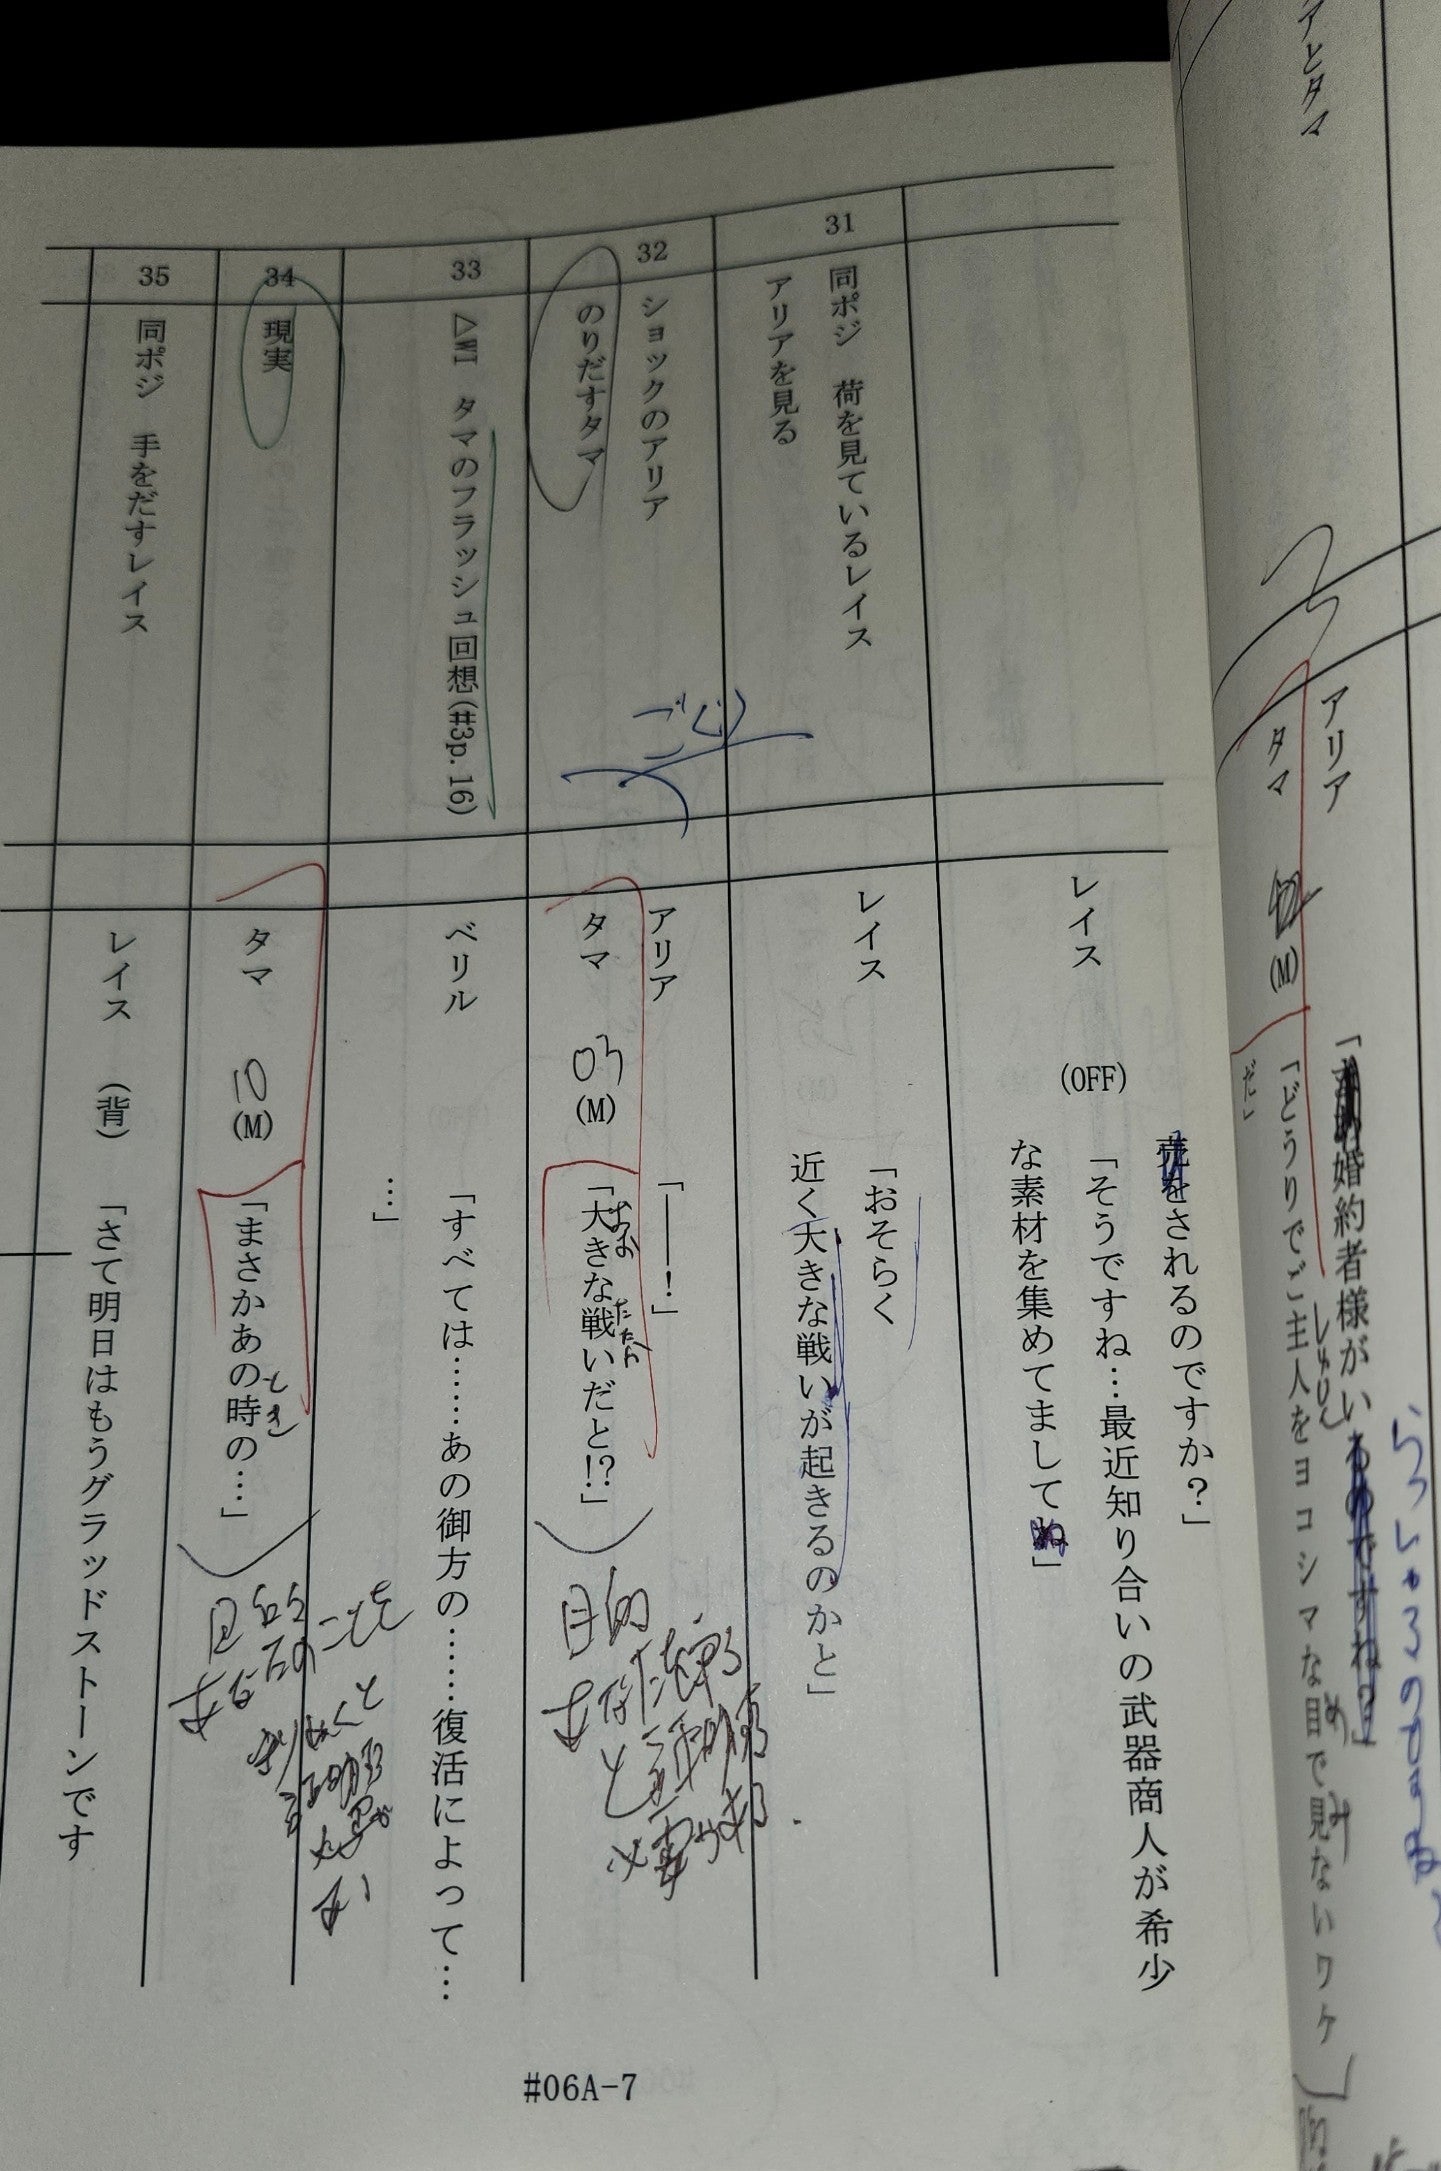 アとタマ
アリア
「婚約者様がい
らっしゃるのですね?
タマ
(M)
「どうりでご主人をヨコシマな目で見ないワケ
しゅじん
め
み
だ」
をされるのですか?」
レイス
(OFF)
「そうですね…最近知り合いの武器商人が希少
な素材を集めてまして」
31
同ポジ 荷を見ているレイス
アリアを見る
レイス
「おそらく
近く大きな戦いが起きるのかと」
32
ショックのアリア
のりだすタマ
アリア
「――!」
タマ
03
(M)
「大きな戦いだと!?」
おお
たたか
目的
33
△WI タマのフラッシュ回想(#3p. 16)
ベリル
「すべては……あの御方の……復活によって…
…」
34
現実
タマ
10
(M)
「まさかあの時の…」
とき
35
同ポジ 手をだすレイス
レイス
(背)
「さて明日はもうグラッドストーンです
#06A-7